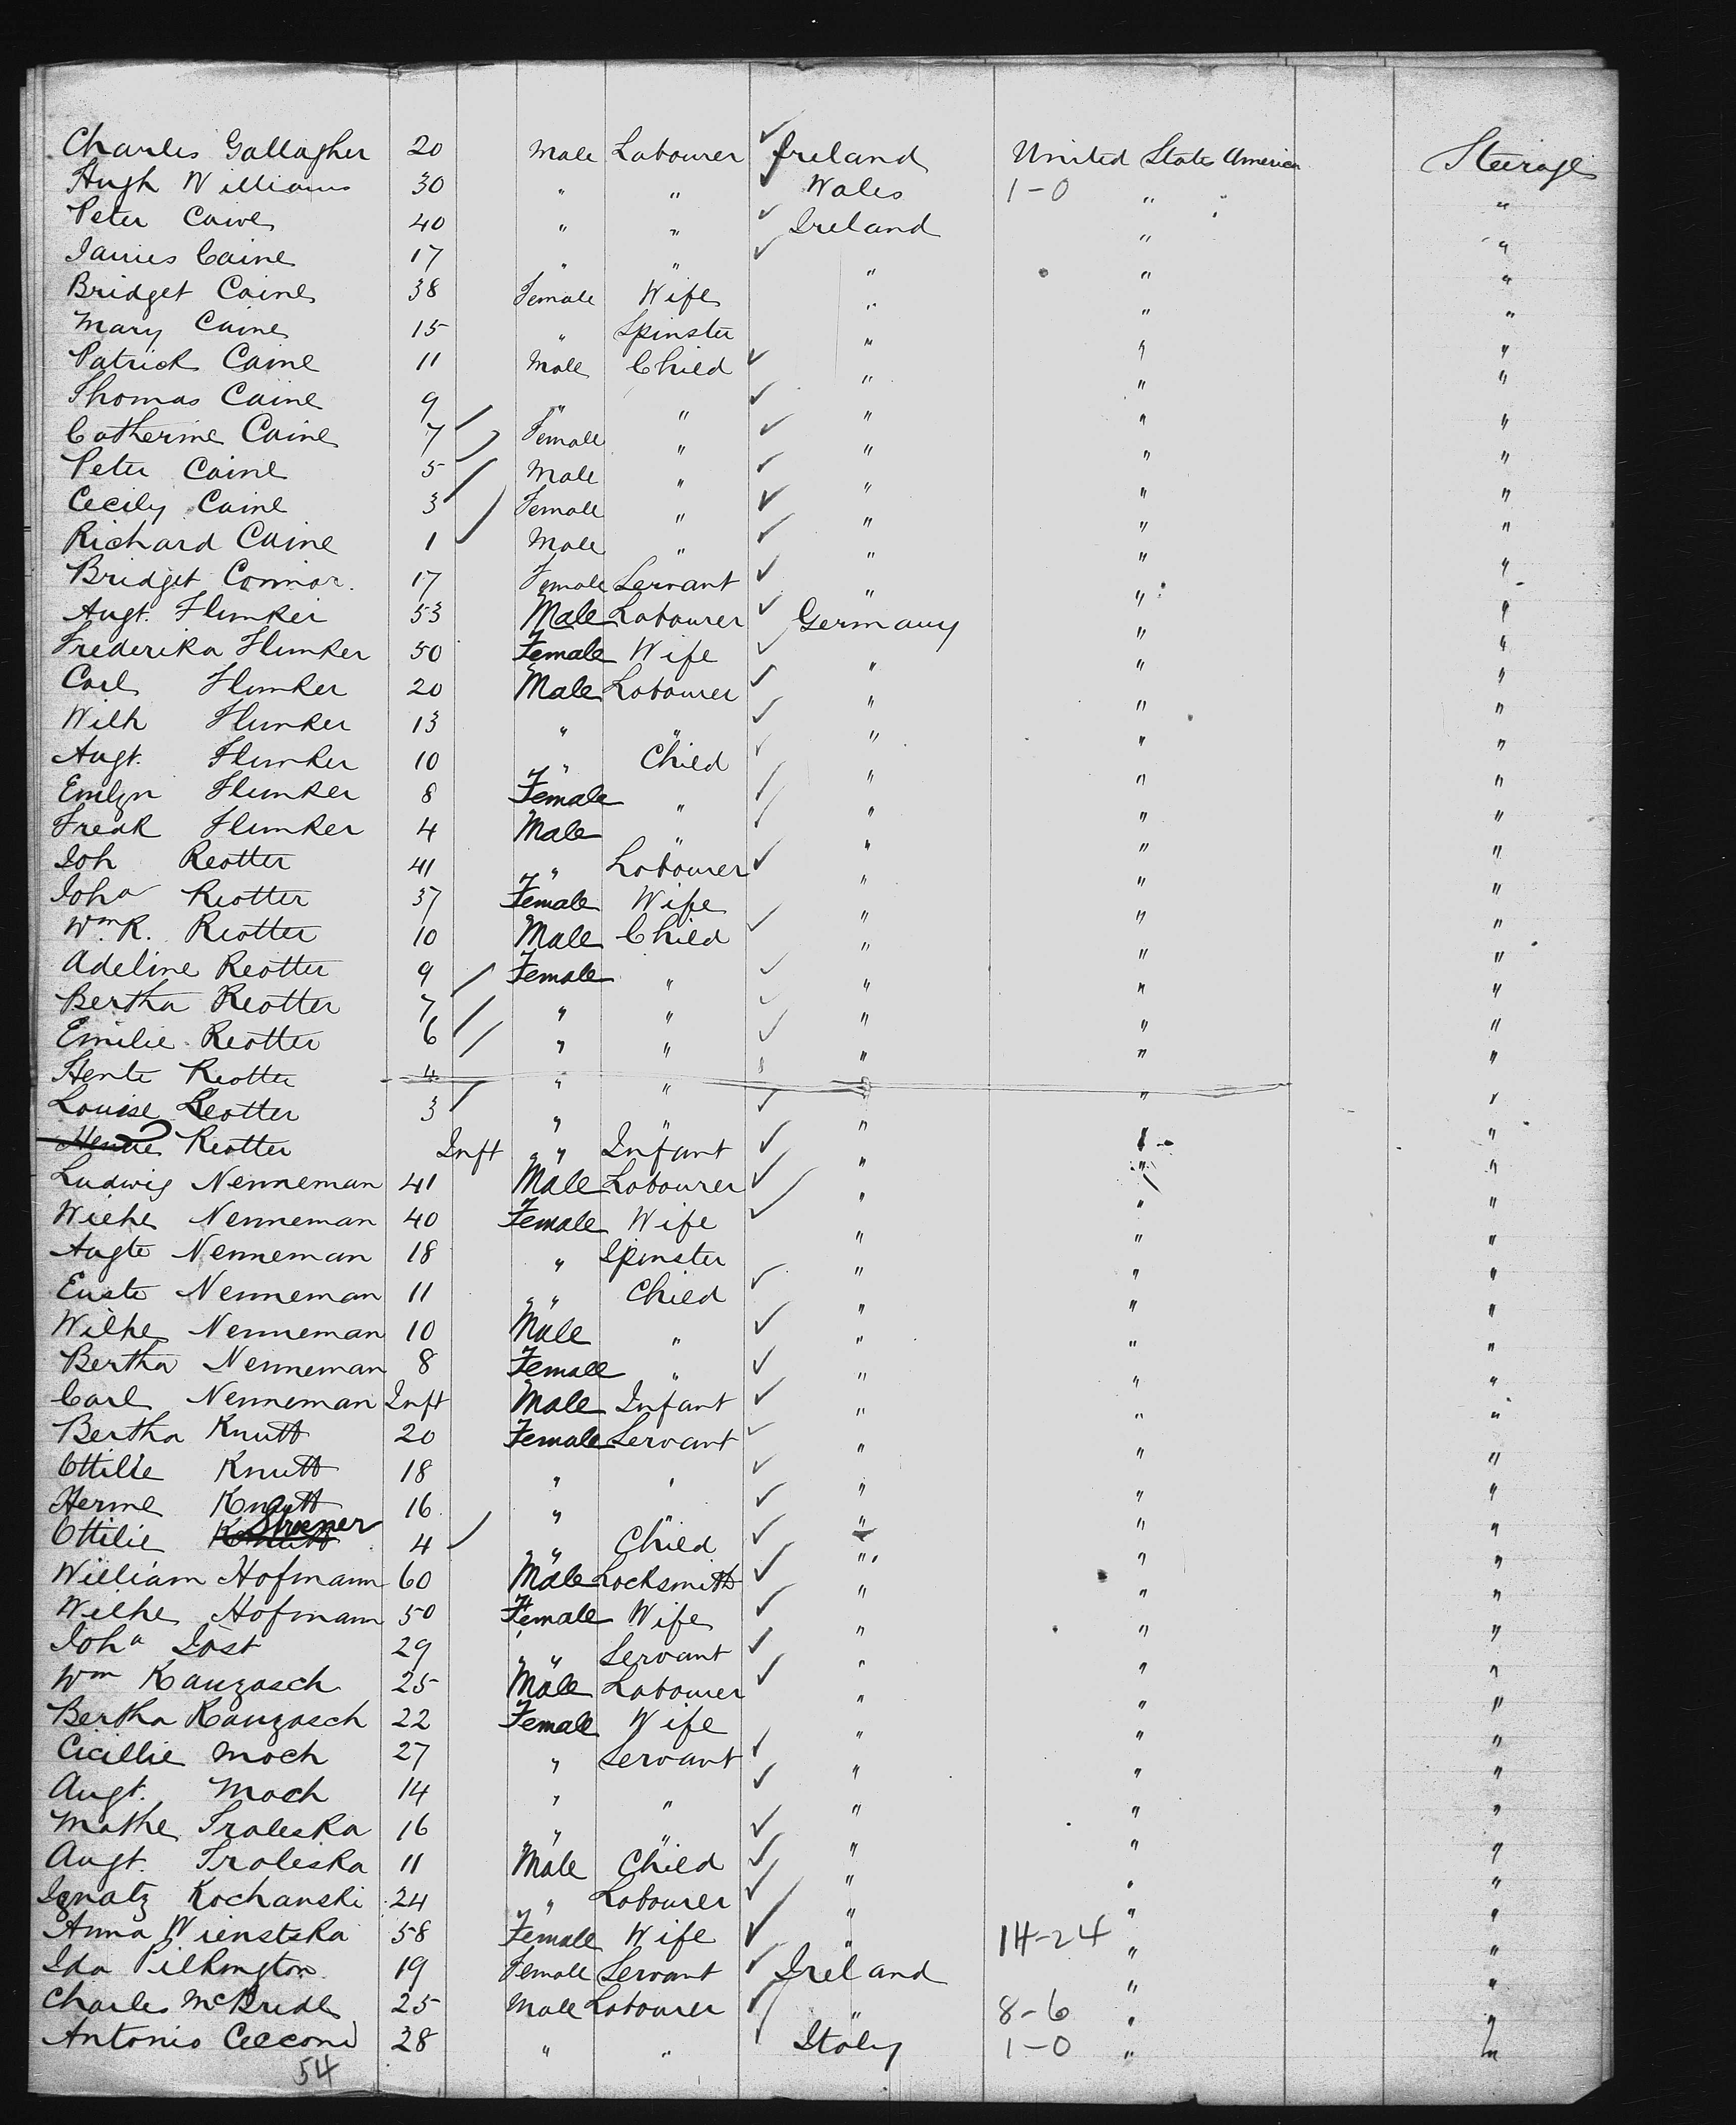 Charles Gallagher 20 Male Labourer Ireland United States America Steerage
Hugh Williams 30 " " Wales 1-0 " "
Peter Caine 40 " " Ireland " "
James Caine 17 " " " " "
Bridget Caine 38 Female Wife " " "
Mary Caine 15 " Spinster " " "
Patrick Caine 11 Male Child " " "
Thomas Caine 9 " " " " "
Catherine Caine 7 Female " " " "
Peter Caine 5 Male " " " "
Cecily Caine 3 Female " " " "
Richard Caine 1 Male " " " "
Bridget Connor. 17 Female Servant " " "
Augt. Flunker 53 Male Labourer Germany " "
Frederika Flunker 50 Female Wife " " "
Carl Flunker 20 Male Labourer " " "
Wilh Flunker 13 " " " " "
Augt. Flunker 10 " Child " " "
Emlyn Flunker 8 Female " " " "
Fredk Flunker 4 Male " " " "
Joh Reotter 41 " Labourer " " "
Joha Reotter 37 Female Wife " " "
Wm. R. Reotter 10 Male Child " " "
Adeline Reotter 9 Female " " " "
Bertha Reotter 7 " " " " "
Emilie Reotter 6 " " " " "
Hente Reotter 4 " " " " "
Louise Reotter 3 " " " " "
Reotter Inft " Infant " " "
Ludwig Nenneman 41 Male Labourer " " "
Wilhe Nenneman 40 Female Wife " " "
Augte Nenneman 18 " Spinster " " "
Enste Nenneman 11 " Child " " "
Wilhe Nenneman 10 Male " " " "
Bertha Nenneman 8 Female " " " "
Carl Nenneman Inft Male Infant " " "
Bertha Knutt 20 Female Servant " " "
Ottilie Knutt 18 " " " " "
Herme Knutt 16 " " " " "
Ottilie 4 " Child " " "
William Hofmann 60 Male Locksmith " " "
Wilhe Hofmann 50 Female Wife " " "
Joha Jost 29 " Servant " " "
Wm Kauzasch 25 Male Labourer " " "
Bertha Kauzasch 22 Female Wife " " "
Cicillie Moch 27 " Servant " " "
Augt. Moch 14 " " " " "
Mathe Traleska 16 " " " " "
Augt. Traleska 11 Male Child " " "
Ignatz Kochanski 24 " Labourer " " "
Anna Wienstska 58 Female Wife " 14-24 " "
Ida Pilkington 19 Female Servant Ireland " "
Charles McBride 25 Male Labourer " 8-6 " "
Antonio Cecconi 28 " " Italy 1-0 " "
54